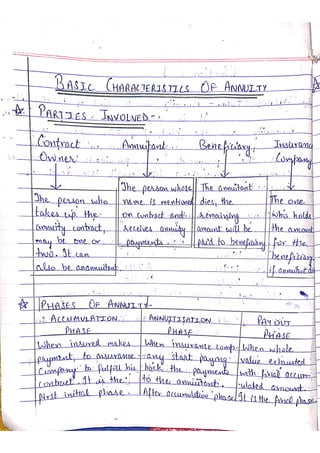 BASIC CHARACTERISTICS OF ANNUITY
PARTIES INVOLVED-
Contract Owner
Annuitant
Beneficiary
Insurance Company
The person who
takes up the
annuity contract,
may be one or
two. It can
also be an annuitant
The person whose
name is mentioned
on contract and
receives annuity
payments.
The annuitant
dies, the
remaining
amount will be
paid to beneficiary
The one
who holds
the amount
for the
beneficiary
if annuitant
PHASES OF ANNUITY-
ACCUMULATION PHASE
ANNUITISATION PHASE
PAYOUT PHASE
When insured makes
payment, to insurance
Company to fulfill his
contract. It is the
first initial phase.
When insurance comp-
any start paying
back the payments
to the annuitant.
After accumulation phase
When whole
value exhausted
with final accum-
ulated amount.
It is the final phase